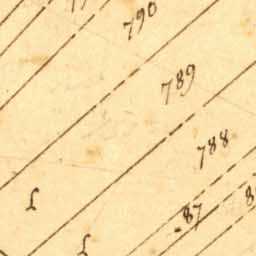 790
789
788
87
L
L